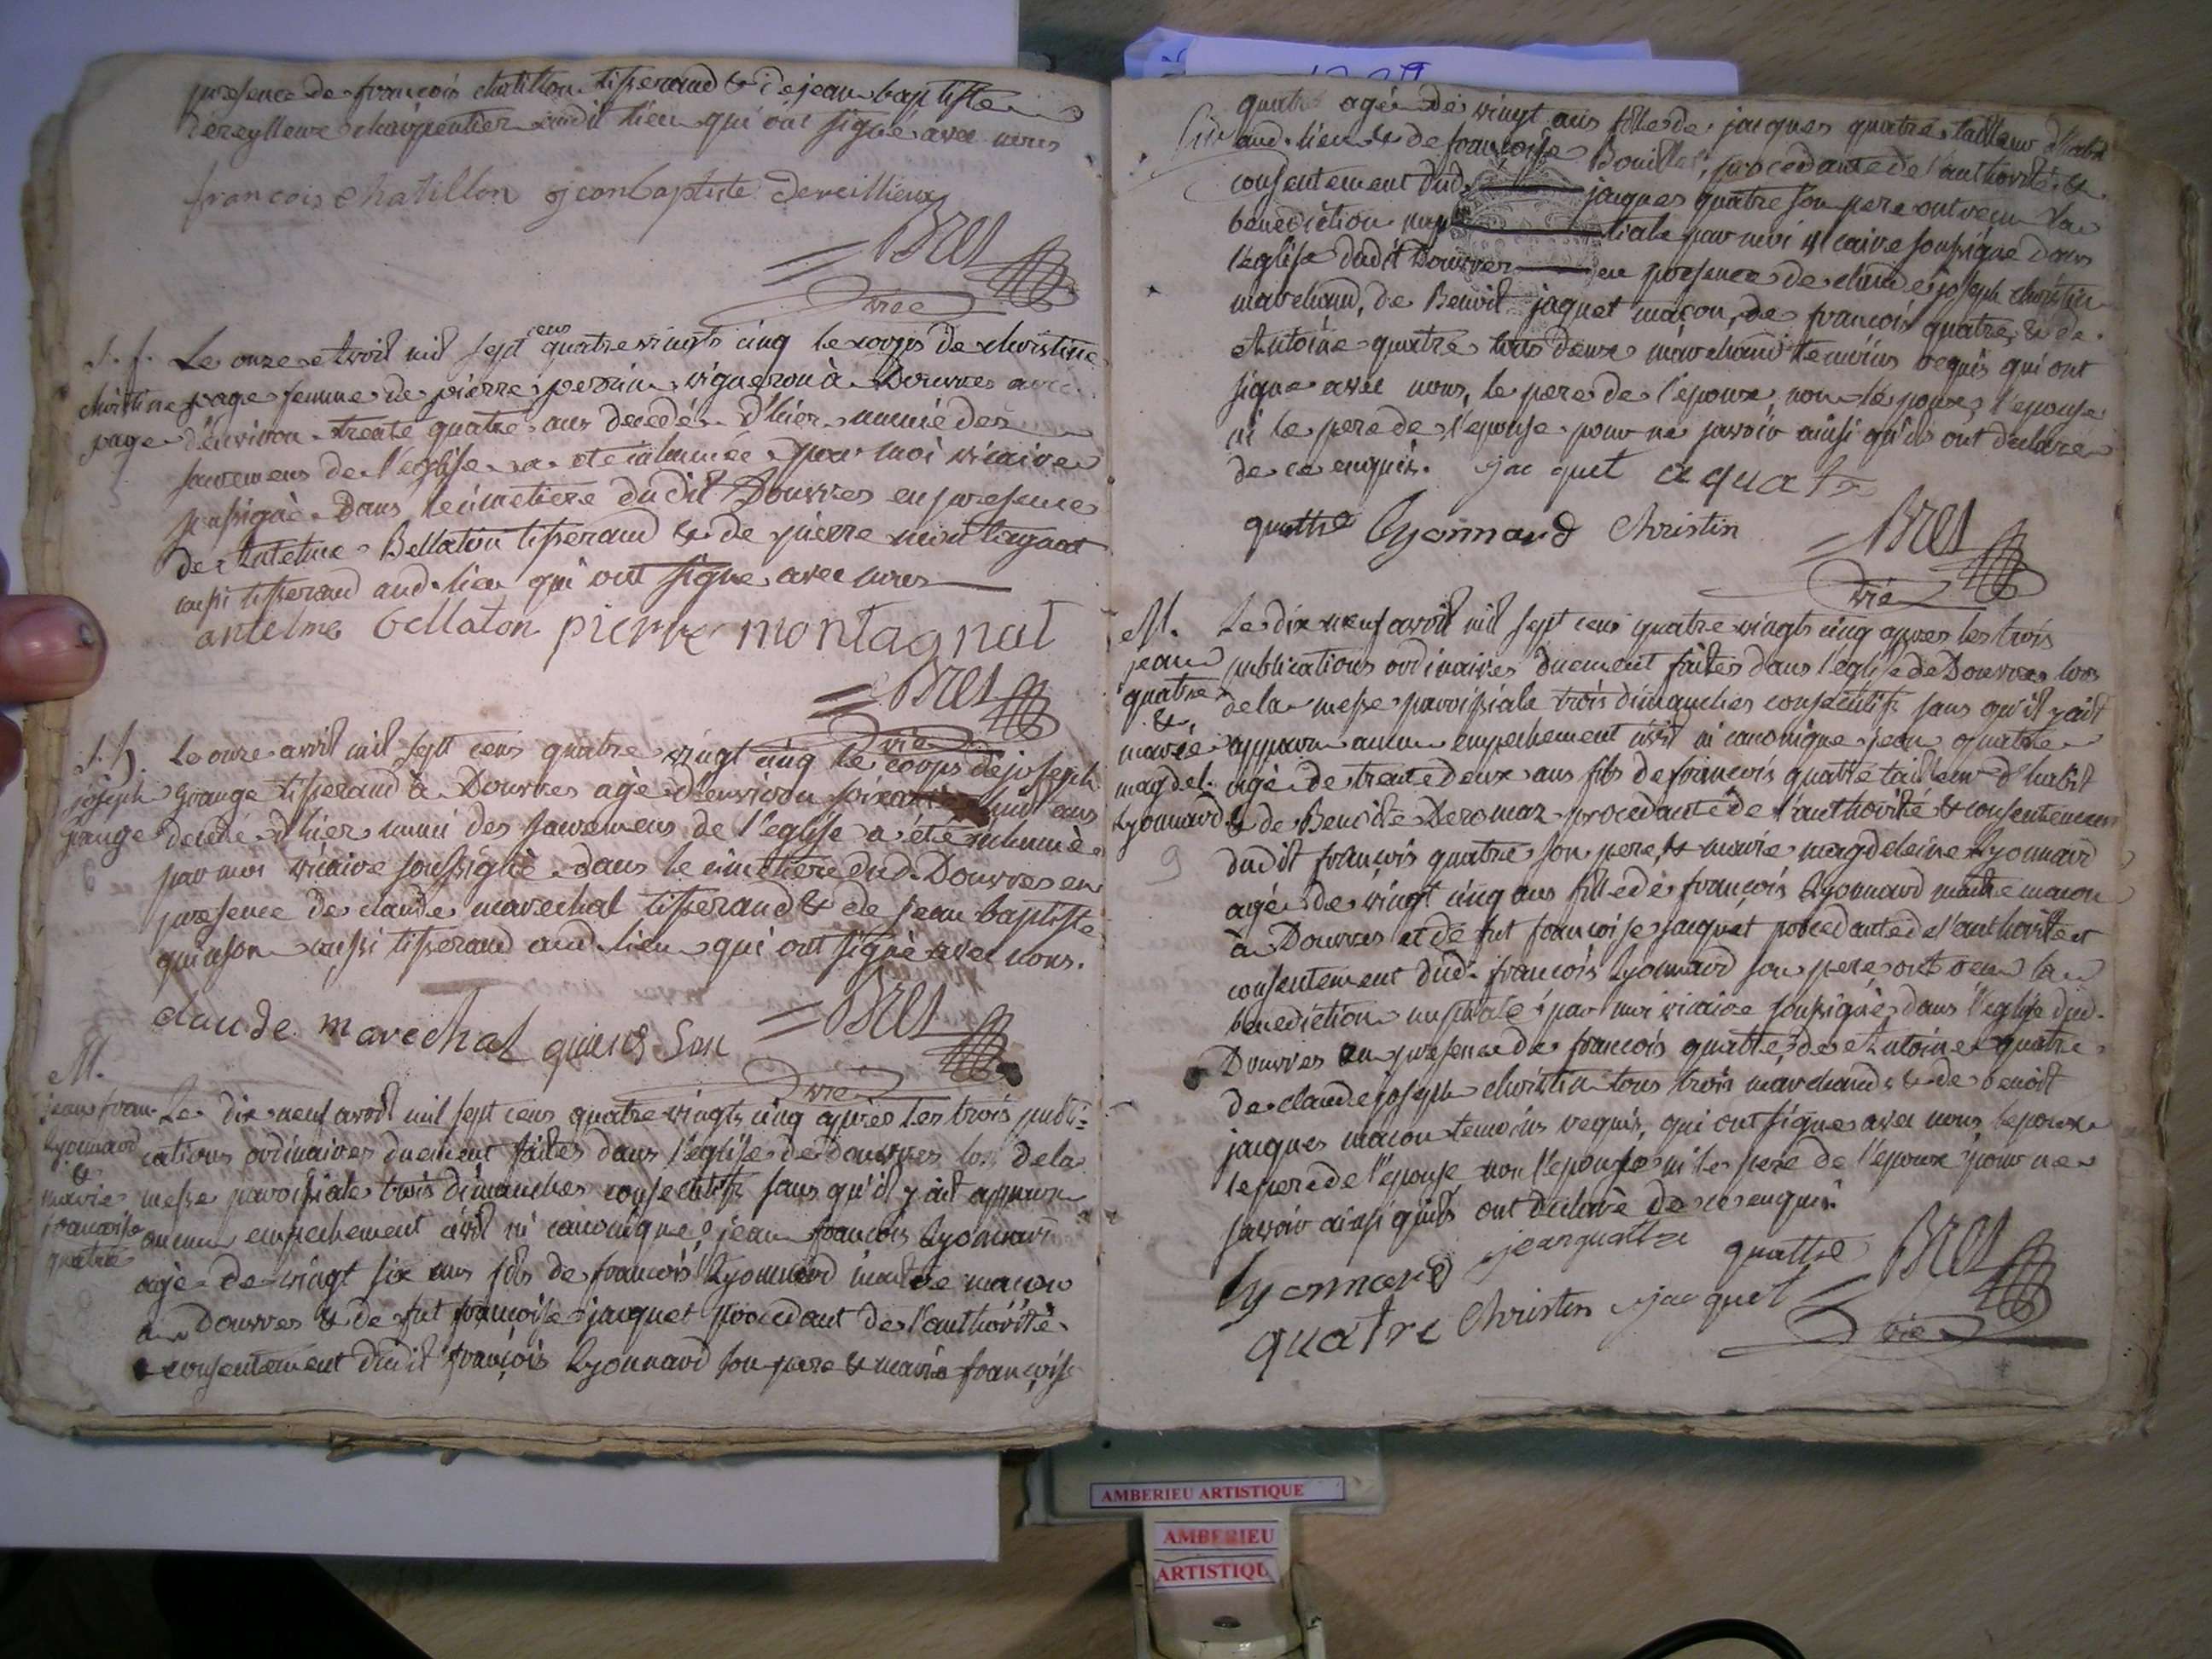 presence de françois chatillon tisserand & de jean baptiste
dereylleux charpentier audit lieu qui ont signé avec nous
francois chatillon jeanbaptiste dereillieux
Bret
vic
S. f.
christine
page
Le onze avril mil sept cens quatre vingts cinq le corps de christine
page femme de pierre perrin vigneron à Douvres agée
d'environ trente quatre ans decedée d'hier munie des
sacremens de l'eglise a été inhumée par moi vicaire
soussigné dans le cimetiere dudit Douvres en presence
de Antelme Bellaton tisserand & de pierre montagnat
aussi tisserand aud. lieu qui ont signé avec nous
antelme bellaton pierre montagnat
Bret
vic
S. h.
joseph
grange
Le onze avril mil sept cens quatre vingt cinq le corps de joseph
Grange tisserand à Douvres agé d'environ soixante huit ans
decedé d'hier muni des sacremens de l'eglise a été inhumé
par moi vicaire soussigné dans le cimetiere dud. Douvres en
presence de claude marechal tisserand & de jean baptiste
quinson aussi tisserand aud. lieu qui ont signé avec nous.
claude marechal quinson
Bret
vic
M.
jean fran.
Lyonnard
&
marie
francoise
quatre
Le dix neuf avril mil sept cens quatre vingts cinq après les trois publi=
cations ordinaires duement faites dans l'eglise de douvres lors de la
messe paroissiale trois dimanches consecutifs sans qu'il y ait apparu
aucun empechement civil ni canonique, jean francois Lyonnard
agé de vingt six ans fils de francois Lyonnard maitre maçon
a Douvres & de fut françoise jacquet procedant de l'authorité
& consentement dudit françois Lyonnard son pere & marie françoise
quatre agée de vingt ans fille de jacques quatre tailleur d'habit
aud. lieu & de françoise Bouillet, procedante de l'authorité &
consentement dud. jacques quatre son pere ont recu la
benediction nuptiale par moi vicaire soussigné dans
l'eglise dudit Douvres en presence de claude joseph christin
marchand, de Benoit jaquet maçon, de françois quatre & de
Antoine quatre tous deux marchand temoins requis qui ont
signé avec nous, le pere de l'epoux, non l'epoux, l'epouse
ni le pere de l'epouse pour ne savoir ainsi qu'ils ont declaré
de ce enquis. jac quet a quatre
quattre lyonnard Christin
Bret
vic
M.
jean
quatre
&
marie
magdel.
Lyonnard
9
Le dix neuf avril mil sept cens quatre vingts cinq apres les trois
publications ordinaires duement faites dans l'eglise de Douvres lors
de la messe paroissiale trois dimanches consecutifs sans qu'il y ait
apparu aucun empechement civil ni canonique jean quatre
agé de trente deux ans fils de françois quatre tailleur d'habit
& de Benoite Deromaz procedante de l'authorité & consentement
dudit françois quatre son pere, & marie magdeleine Lyonnard
agée de vingt cinq ans fille de françois Lyonnard maitre macon
à Douvres et de fut francoise jacquet procedante de l'authorité et
consentement dud. françois Lyonnard son pere, ont recu la
benediction nuptiale par moi vicaire soussigné dans l'eglise dud.
Douvres en presence de francois quatre, de Antoine quatre
de claude joseph christin tous trois marchands & de benoit
jacques macon temoins requis, qui ont signé avec nous, l'epoux
le pere de l'epouse non l'epouse ni le pere de l'epoux pour ne
savoir ainsi quils ont declaré de ce enquis.
jean quattre quattre Bret
lyonnard
quatre Christin jacquet
vic
AMBERIEU ARTISTIQUE
AMBERIEU
ARTISTIQU